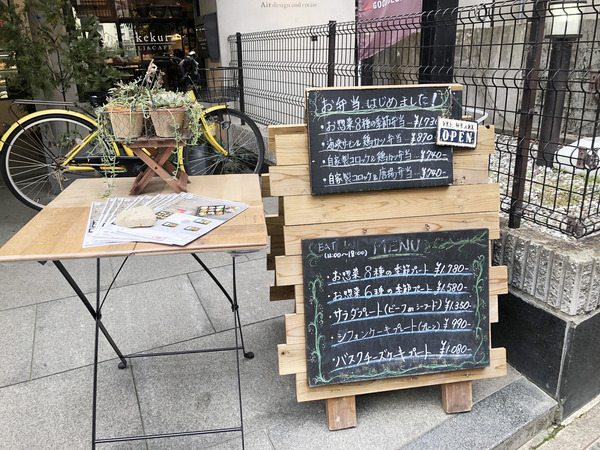 Air design and rooms.
kekur
LI&CAFE
お弁当、はじめました!
・お惣菜8種の季節弁当 ¥1,730
鶏 弁当 ¥870
・自家製コロッケと鶏 弁当 ¥740
・自家製コロッケと唐揚弁当 ¥740
YES WE ARE
OPEN
EAT IN MENU
(11:00〜18:00)
・お惣菜8種の季節プレート ¥1,780-
・お惣菜6種の季節プレート ¥1,580-
・サラダプレート(ビーフorシーフード) ¥1,350-
・シフォンケーキプレート(プレーン) ¥990-
・バスクチーズケーキプレート ¥1,080-